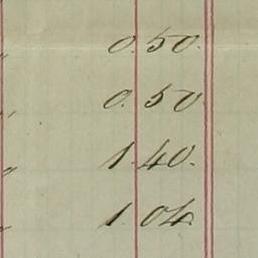 " 0.50.
" 0.50
" 1.40.
" 1.04